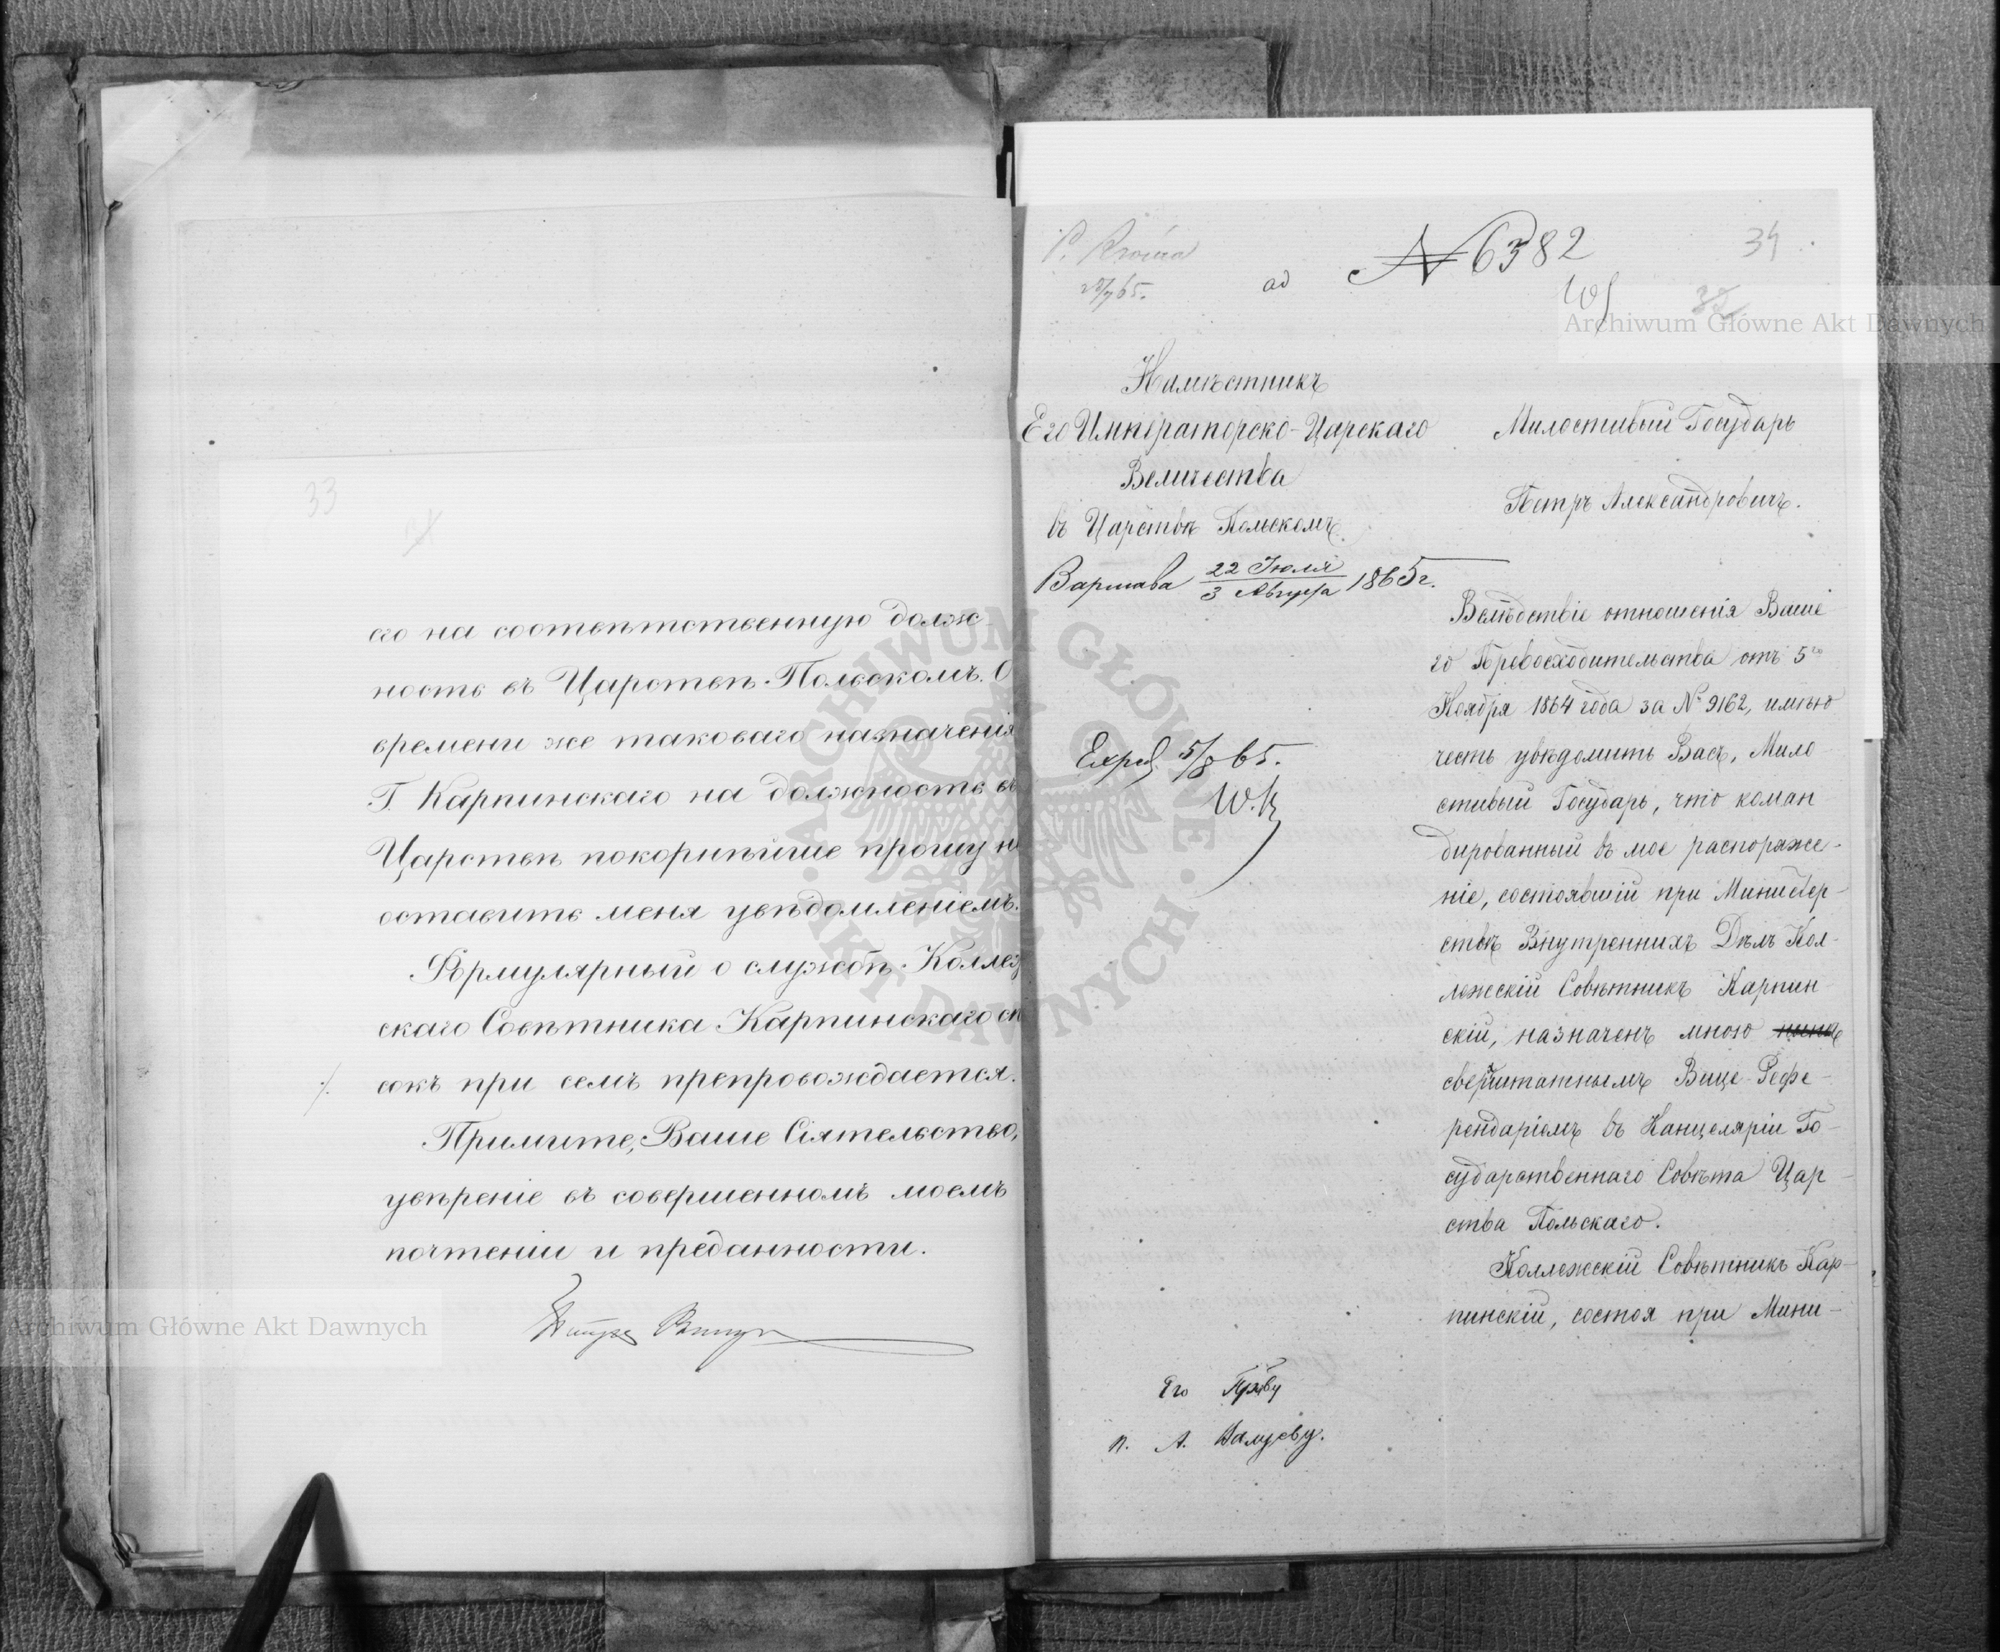 33
его на соотвѣтственную долж-
ность въ Царствѣ Польскомъ. О
времени же таковаго назначенія
Г. Карпинскаго на должность въ
Царствѣ покорнѣйше прошу не
оставить меня увѣдомленіемъ.
Формулярный о службѣ Коллеж
скаго Совѣтника Карпинскаго спи
сокъ при семъ препровождается.
Примите, Ваше Сіятельство,
увѣреніе въ совершенномъ моемъ
почтеніи и преданности.
34
ad № 6382
Намѣстникъ
Его Императорско-Царскаго
Величества
въ Царствѣ Польскомъ.
Варшава 22 Іюля / 3 Августа 1865 г.
Exped 5/8 65.
Его Пр-ству
П. А. Валуеву.
Милостивый Государь
Петръ Александровичъ.
Вслѣдствіе отношенія Ваше
го Превосходительства отъ 5го
Ноября 1864 года за № 9162, имѣю
честь увѣдомить Васъ, Мило
стивый Государь, что коман
дированный въ мое распоряже-
ніе, состоявшій при Министер-
ствѣ Внутреннихъ Дѣлъ Кол-
лежскій Совѣтникъ Карпин
скій, назначенъ мною
сверхштатнымъ Вице-Рефе-
рендаріемъ въ Канцеляріи Го-
сударственнаго Совѣта Цар-
ства Польскаго.
Коллежскій Совѣтникъ Кар-
пинскій, состоя при Мини-
Archiwum Główne Akt Dawnych
Archiwum Główne Akt Dawnych
ARCHIWUM GŁÓWNE AKT DAWNYCH